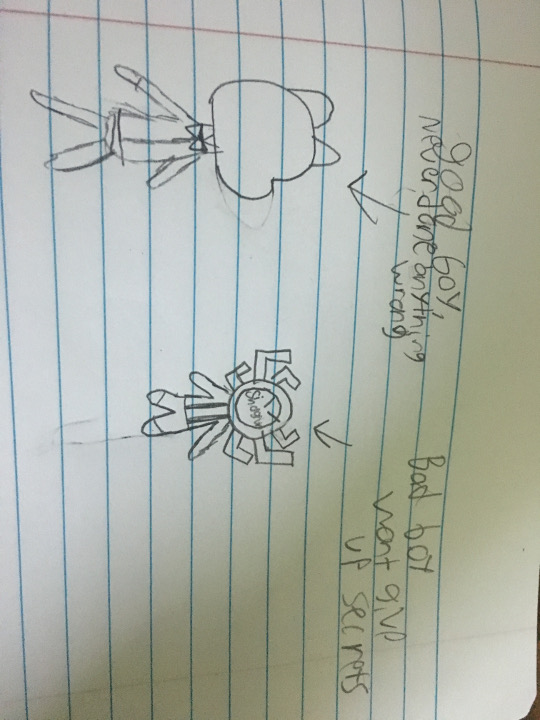 good boy,
never done anything
wrong
Bad boy
wont give
up secrets